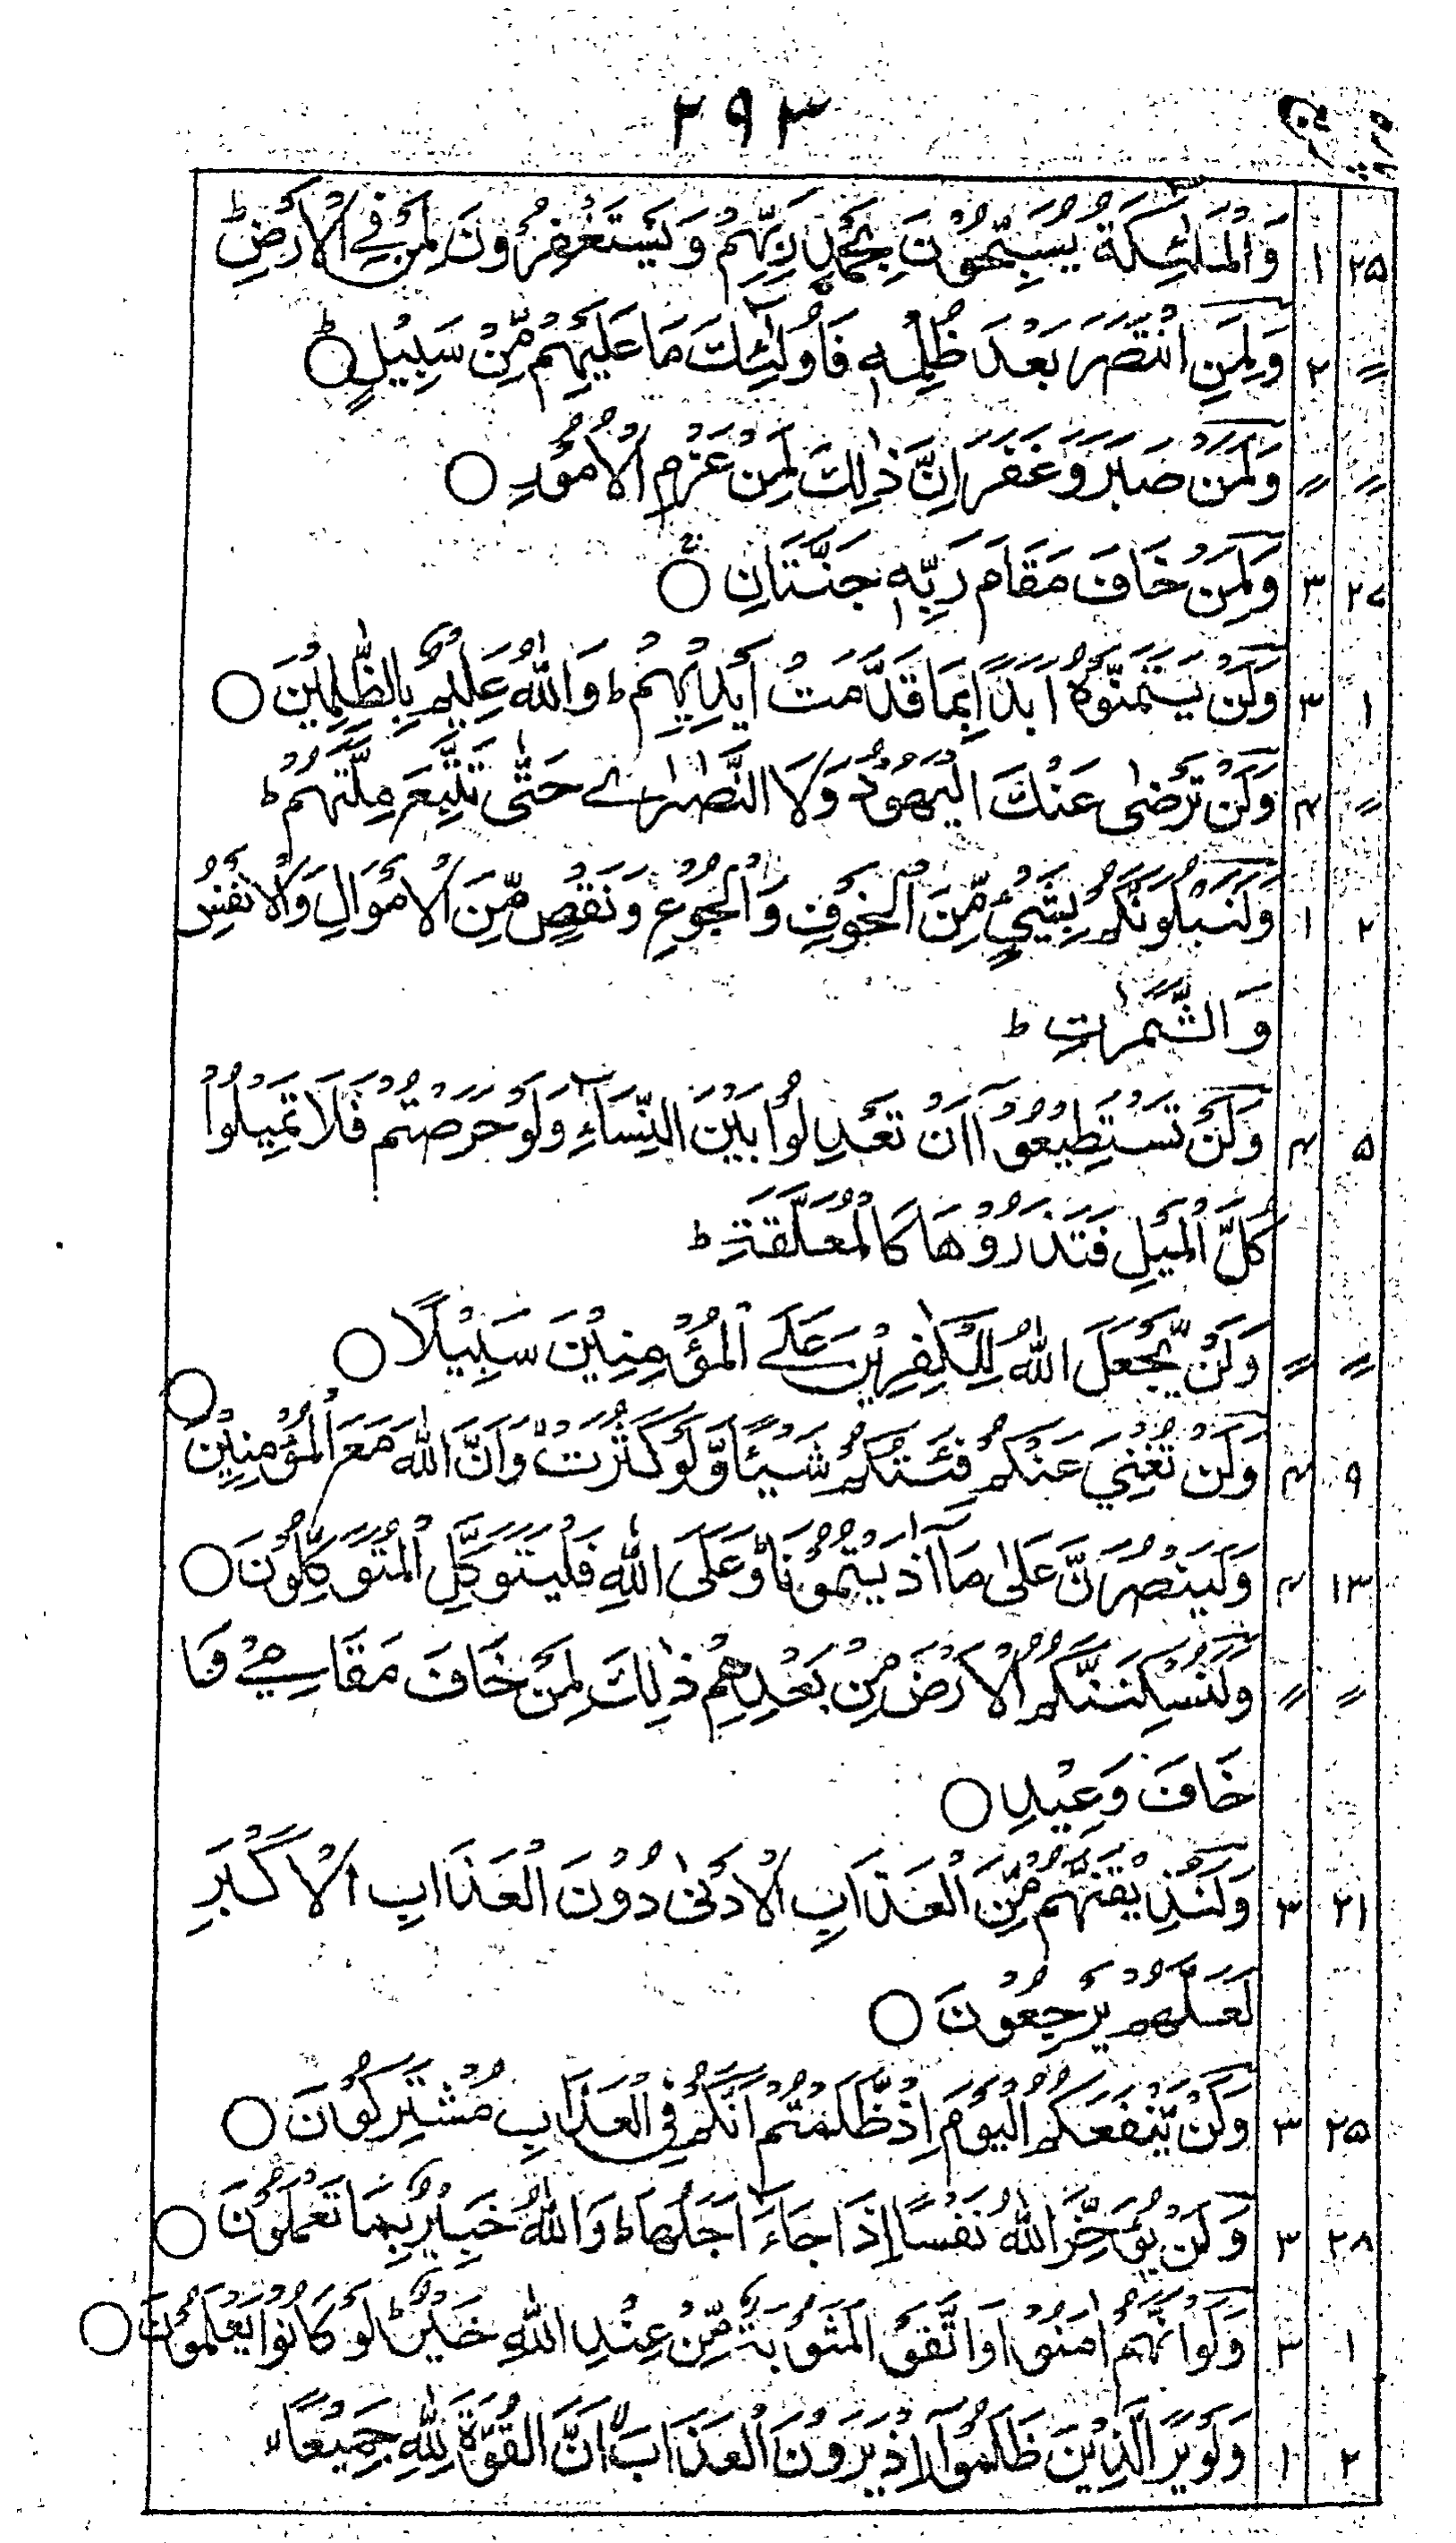 ۲۹۳
۲۵ ۱ وَالْمَلٰٓئِكَةُ يُسَبِّحُوْنَ بِحَمْدِ رَبِّهِمْ وَيَسْتَغْفِرُوْنَ لِمَنْ فِي الْاَرْضِ ؕ
〃 ۲ وَلَمَنِ انْتَصَرَ بَعْدَ ظُلْمِهٖ فَاُولٰٓئِكَ مَا عَلَيْهِمْ مِّنْ سَبِيْلٍ ؕ○
〃 〃 وَلَمَنْ صَبَرَ وَغَفَرَ اِنَّ ذٰلِكَ لَمِنْ عَزْمِ الْاُمُوْرِ ○
۲۷ ۳ وَلِمَنْ خَافَ مَقَامَ رَبِّهٖ جَنَّتٰنِ ○
۱ ۳ وَلَنْ يَّتَمَنَّوْهُ اَبَدًۢا بِمَا قَدَّمَتْ اَيْدِيْهِمْ ؕ وَاللّٰهُ عَلِيْمٌۢ بِالظّٰلِمِيْنَ ○
〃 ۴ وَلَنْ تَرْضٰى عَنْكَ الْيَهُوْدُ وَلَا النَّصٰرٰے حَتّٰى تَتَّبِعَ مِلَّتَهُمْ ؕ
۲ ۱ وَلَنَبْلُوَنَّكُمْ بِشَيْءٍ مِّنَ الْخَوْفِ وَالْجُوْعِ وَنَقْصٍ مِّنَ الْاَمْوَالِ وَالْاَنْفُسِ
وَالثَّمَرٰتِ ؕ
۵ ۴ وَلَنْ تَسْتَطِيْعُوْٓا اَنْ تَعْدِلُوْا بَيْنَ النِّسَآءِ وَلَوْ حَرَصْتُمْ فَلَا تَمِيْلُوْا
كُلَّ الْمَيْلِ فَتَذَرُوْهَا كَالْمُعَلَّقَةِ ؕ
〃 〃 وَلَنْ يَّجْعَلَ اللّٰهُ لِلْكٰفِرِيْنَ عَلَے الْمُؤْمِنِيْنَ سَبِيْلًا ○
۹ ۴ وَلَنْ تُغْنِيَ عَنْكُمْ فِئَتُكُمْ شَيْئًا وَّلَوْ كَثُرَتْ ۙ وَاَنَّ اللّٰهَ مَعَ الْمُؤْمِنِيْنَ ○
۱۳ ۴ وَلَنَصْبِرَنَّ عَلٰى مَآ اٰذَيْتُمُوْنَا ؕ وَعَلَى اللّٰهِ فَلْيَتَوَكَّلِ الْمُتَوَكِّلُوْنَ ○
〃 〃 وَلَنُسْكِنَنَّكُمُ الْاَرْضَ مِنْۢ بَعْدِهِمْ ذٰلِكَ لِمَنْ خَافَ مَقَامِيْ وَ
خَافَ وَعِيْدِ ○
۲۱ ۳ وَلَنُذِيْقَنَّهُمْ مِّنَ الْعَذَابِ الْاَدْنٰى دُوْنَ الْعَذَابِ الْاَكْبَرِ
لَعَلَّهُمْ يَرْجِعُوْنَ ○
۲۵ ۳ وَلَنْ يَّنْفَعَكُمُ الْيَوْمَ اِذْ ظَّلَمْتُمْ اَنَّكُمْ فِي الْعَذَابِ مُشْتَرِكُوْنَ ○
۲۸ ۳ وَلَنْ يُّؤَخِّرَ اللّٰهُ نَفْسًا اِذَا جَآءَ اَجَلُهَا ؕ وَاللّٰهُ خَبِيْرٌۢ بِمَا تَعْمَلُوْنَ ○
۱ ۳ وَلَوْ اَنَّهُمْ اٰمَنُوْا وَاتَّقَوْا لَمَثُوْبَةٌ مِّنْ عِنْدِ اللّٰهِ خَيْرٌ ؕ لَوْ كَانُوْا يَعْلَمُوْنَ ○
۲ ۱ وَلَوْ يَرَى الَّذِيْنَ ظَلَمُوْٓا اِذْ يَرَوْنَ الْعَذَابَ ۙ اَنَّ الْقُوَّةَ لِلّٰهِ جَمِيْعًا ۙ